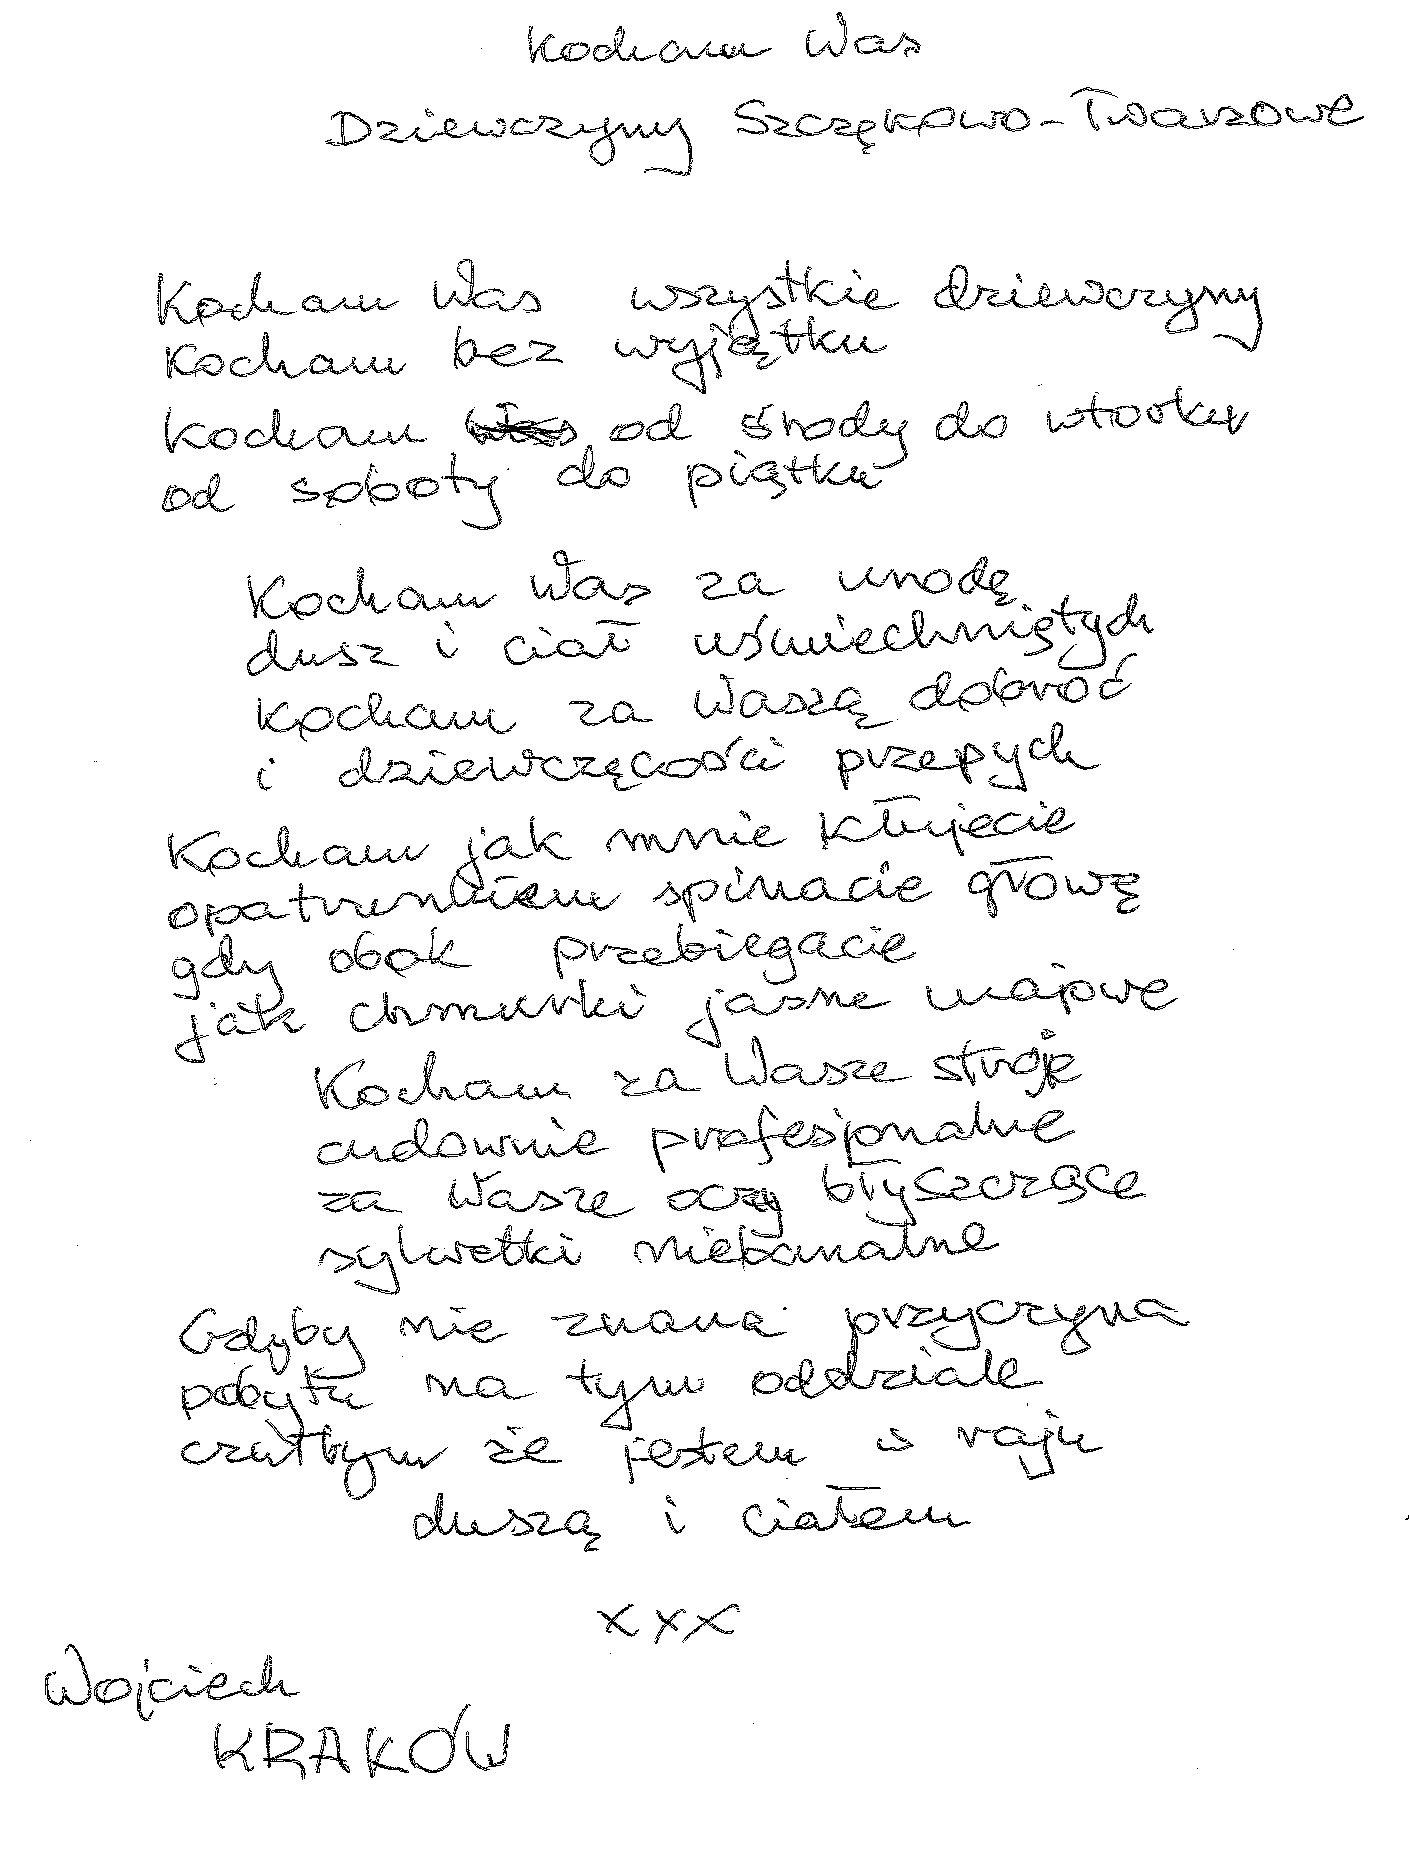 Kocham Was
Dziewczyny Szczękowo-Twarzowe
Kocham Was wszystkie dziewczyny
Kocham bez wyjątku
Kocham od środy do wtorku
od soboty do piątku
Kocham Was za urodę
dusz i ciał uśmiechniętych
Kocham za Waszą dobroć
i dziewczęcości przepych
Kocham jak mnie kłujecie
opatrunkiem spinacie głowę
gdy obok przebiegacie
jak chmurki jasne majowe
Kocham za Wasze stroje
cudownie profesjonalne
za Wasze oczy błyszczące
sylwetki niebanalne
Gdyby nie znana przyczyna
pobytu na tym oddziale
czułbym że jestem w raju
duszą i ciałem
xxx
Wojciech
KRAKÓW